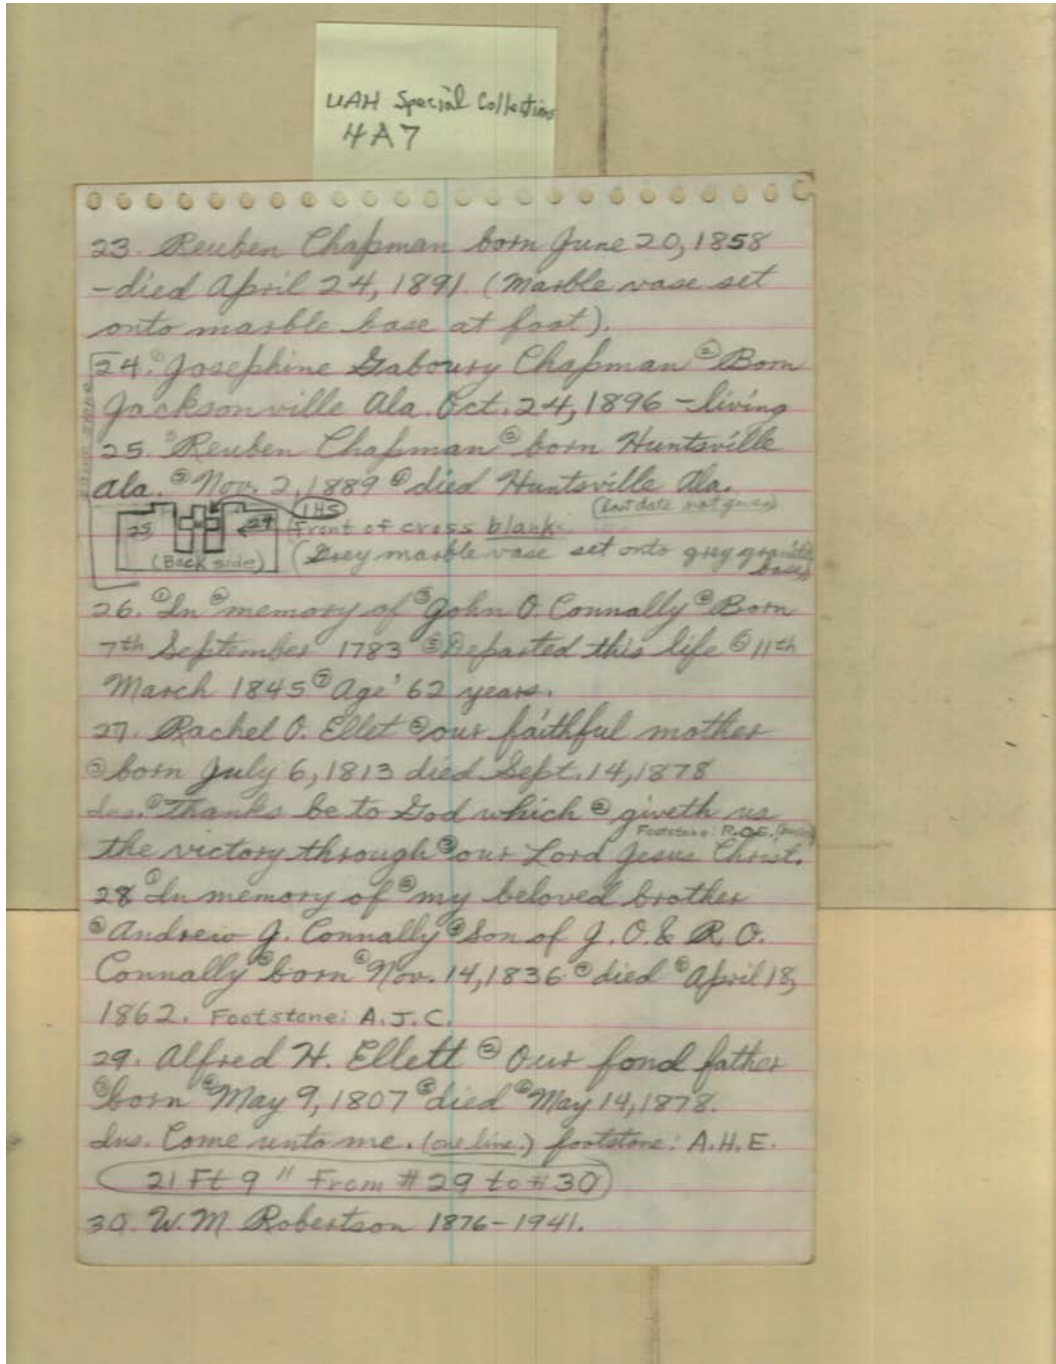 UAH Special Collections
4A7
23. Reuben Chapman born June 20, 1858
-died April 24, 1891. (Marble vase set
onto marble base at foot).
24. ① Josephine Gaboury Chapman ② Born
Jacksonville Ala. Oct. 24, 1896 - living
25. ① Reuben Chapman ② born Huntsville
Ala. ③ Nov. 2, 1889 ④ died Huntsville Ala.
(last date not given)
IHS
25 24 Front of cross blank
(Back side) (Grey marble vase set onto grey granite
base)
26. ① In ② memory of ③ John O. Connally ④ Born
7th September 1783 ⑤ Departed this life ⑥ 11th
March 1845 ⑦ Age' 62 years.
27. Rachel O. Ellet ② our faithful mother
③ born July 6, 1813 died Sept. 14, 1878
Ins. ① Thanks be to God which ② giveth us
Footstone: R.O.E.
the victory through ③ our Lord Jesus Christ.
28 ① In memory of ② my beloved brother
③ Andrew J. Connally ④ Son of J. O. & R. O.
Connally ⑤ born ⑥ Nov. 14, 1836 ⑦ died ⑧ April 18,
1862. Footstone: A.J.C.
29. Alfred H. Ellett ② Our fond father
③ born ④ May 9, 1807 ⑤ died ⑥ May 14, 1878.
Ins. Come unto me. (one line.) footstone: A.H.E.
21 Ft 9" From #29 to #30
30. W. M. Robertson 1876-1941.